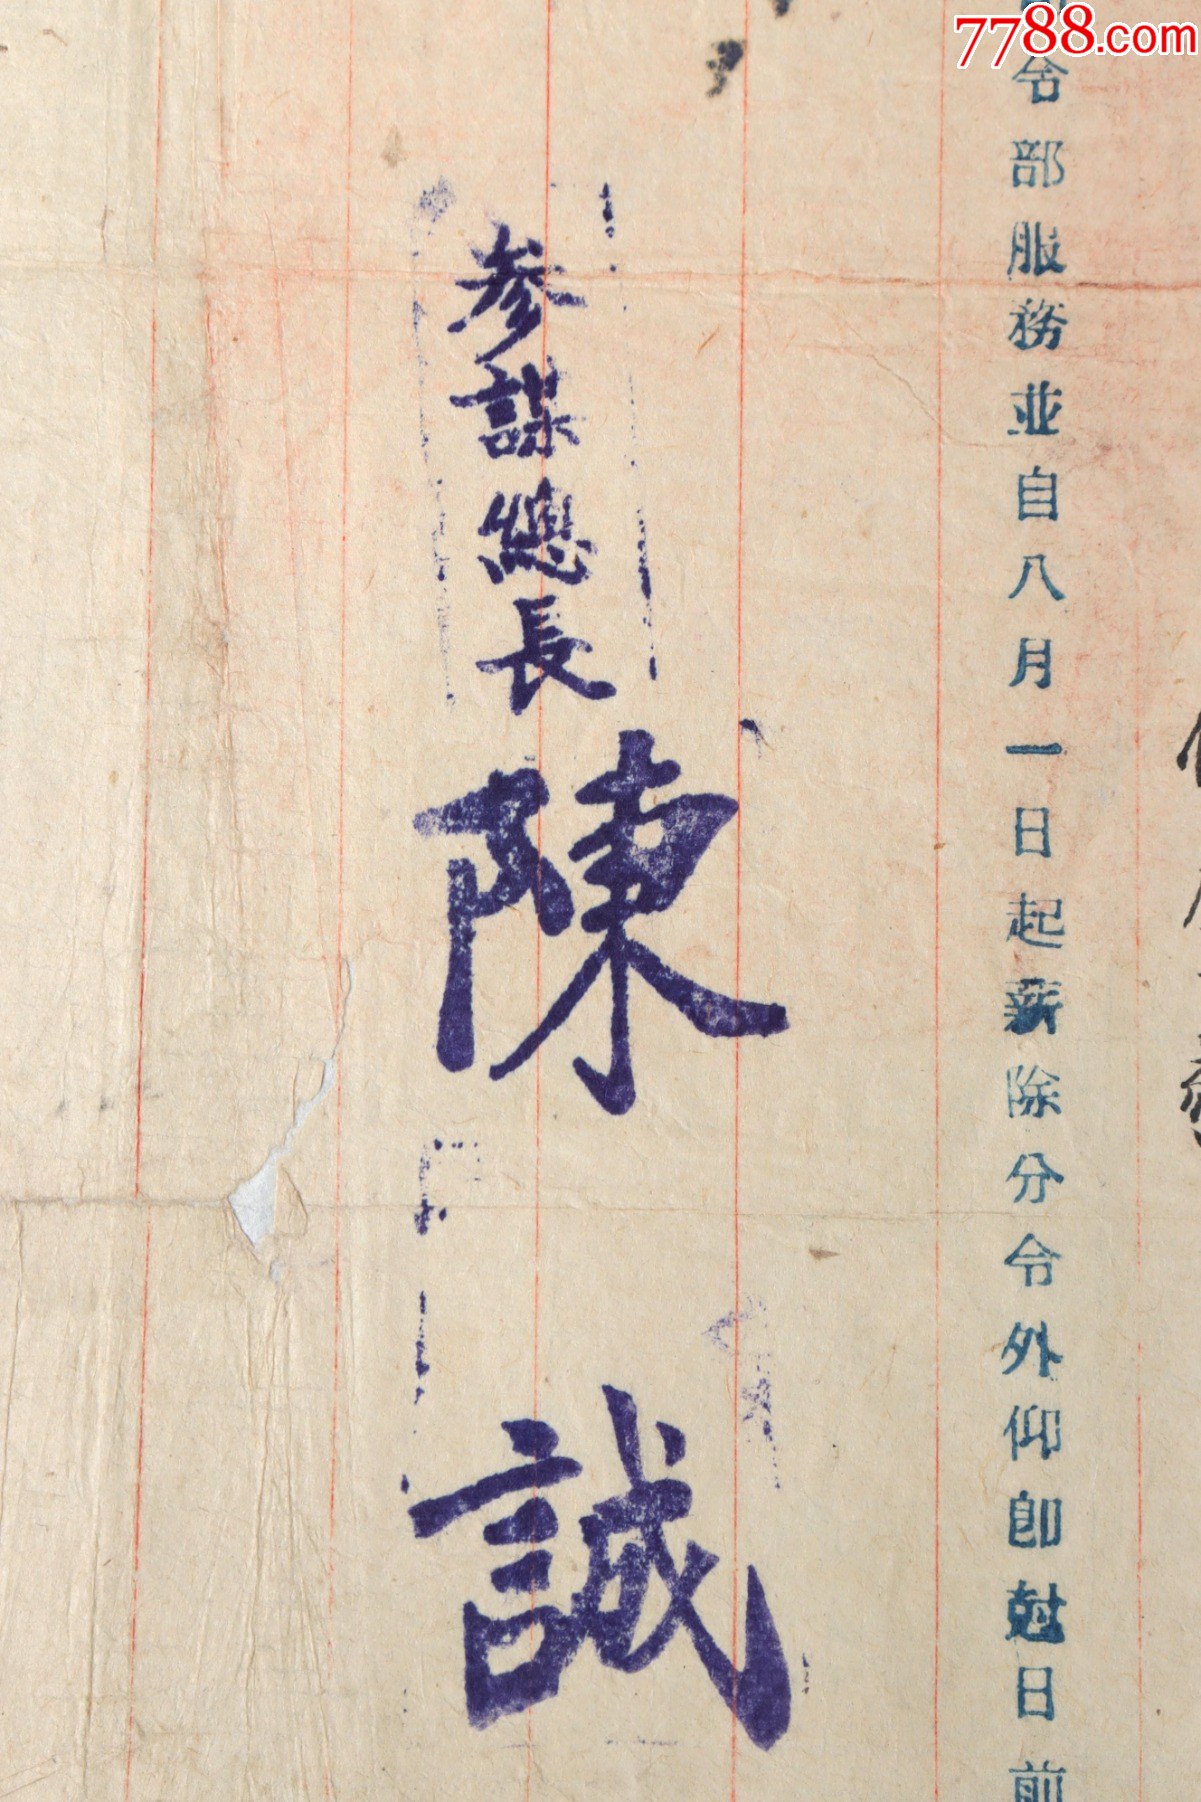 7788.com
令部服務並自八月一日起薪除分令外仰即尅日前
參謀總長陳誠